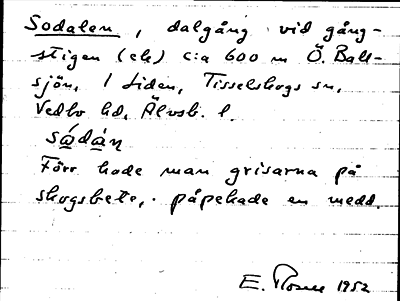 Sodalen, dalgång vid gång-
stigen (ek) c:a 600 m Ö. Ball-
sjön, 1 Liden, Tisselskogs sn,
Vedbo hd, Älvsb. l.
sádàn
Förr hade man grisarna på
skogsbete, påpekade en medd.
E. 1952